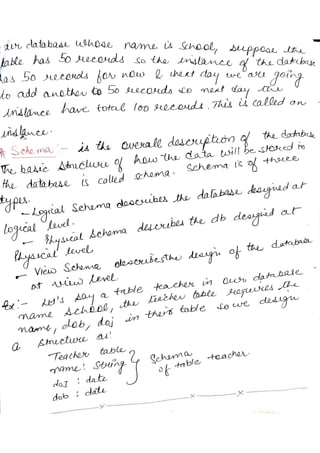 our database whose name is School, suppose the
table has 50 records so the instance of the database
has 50 records for now & next day we are going
to add another to 50 records so next day the
instance have total 100 records. This is called an
instance.
# Schema :- is the overall description of the database
The basic structure of how the data will be stored in
the database is called schema. Schema is of three
types.
- Logical Schema describes the database designed at
logical level.
- Physical Schema describes the db designed at
Physical level
- View Schema describes the design of the database
at view level
Ex:- let's say a table teacher in our database
name school, the teacher table requires the
name, dob, doj in their table so we design
a structure as:
Teacher table
name: String
doj : date
dob : date
Schema
of table teacher
x x x